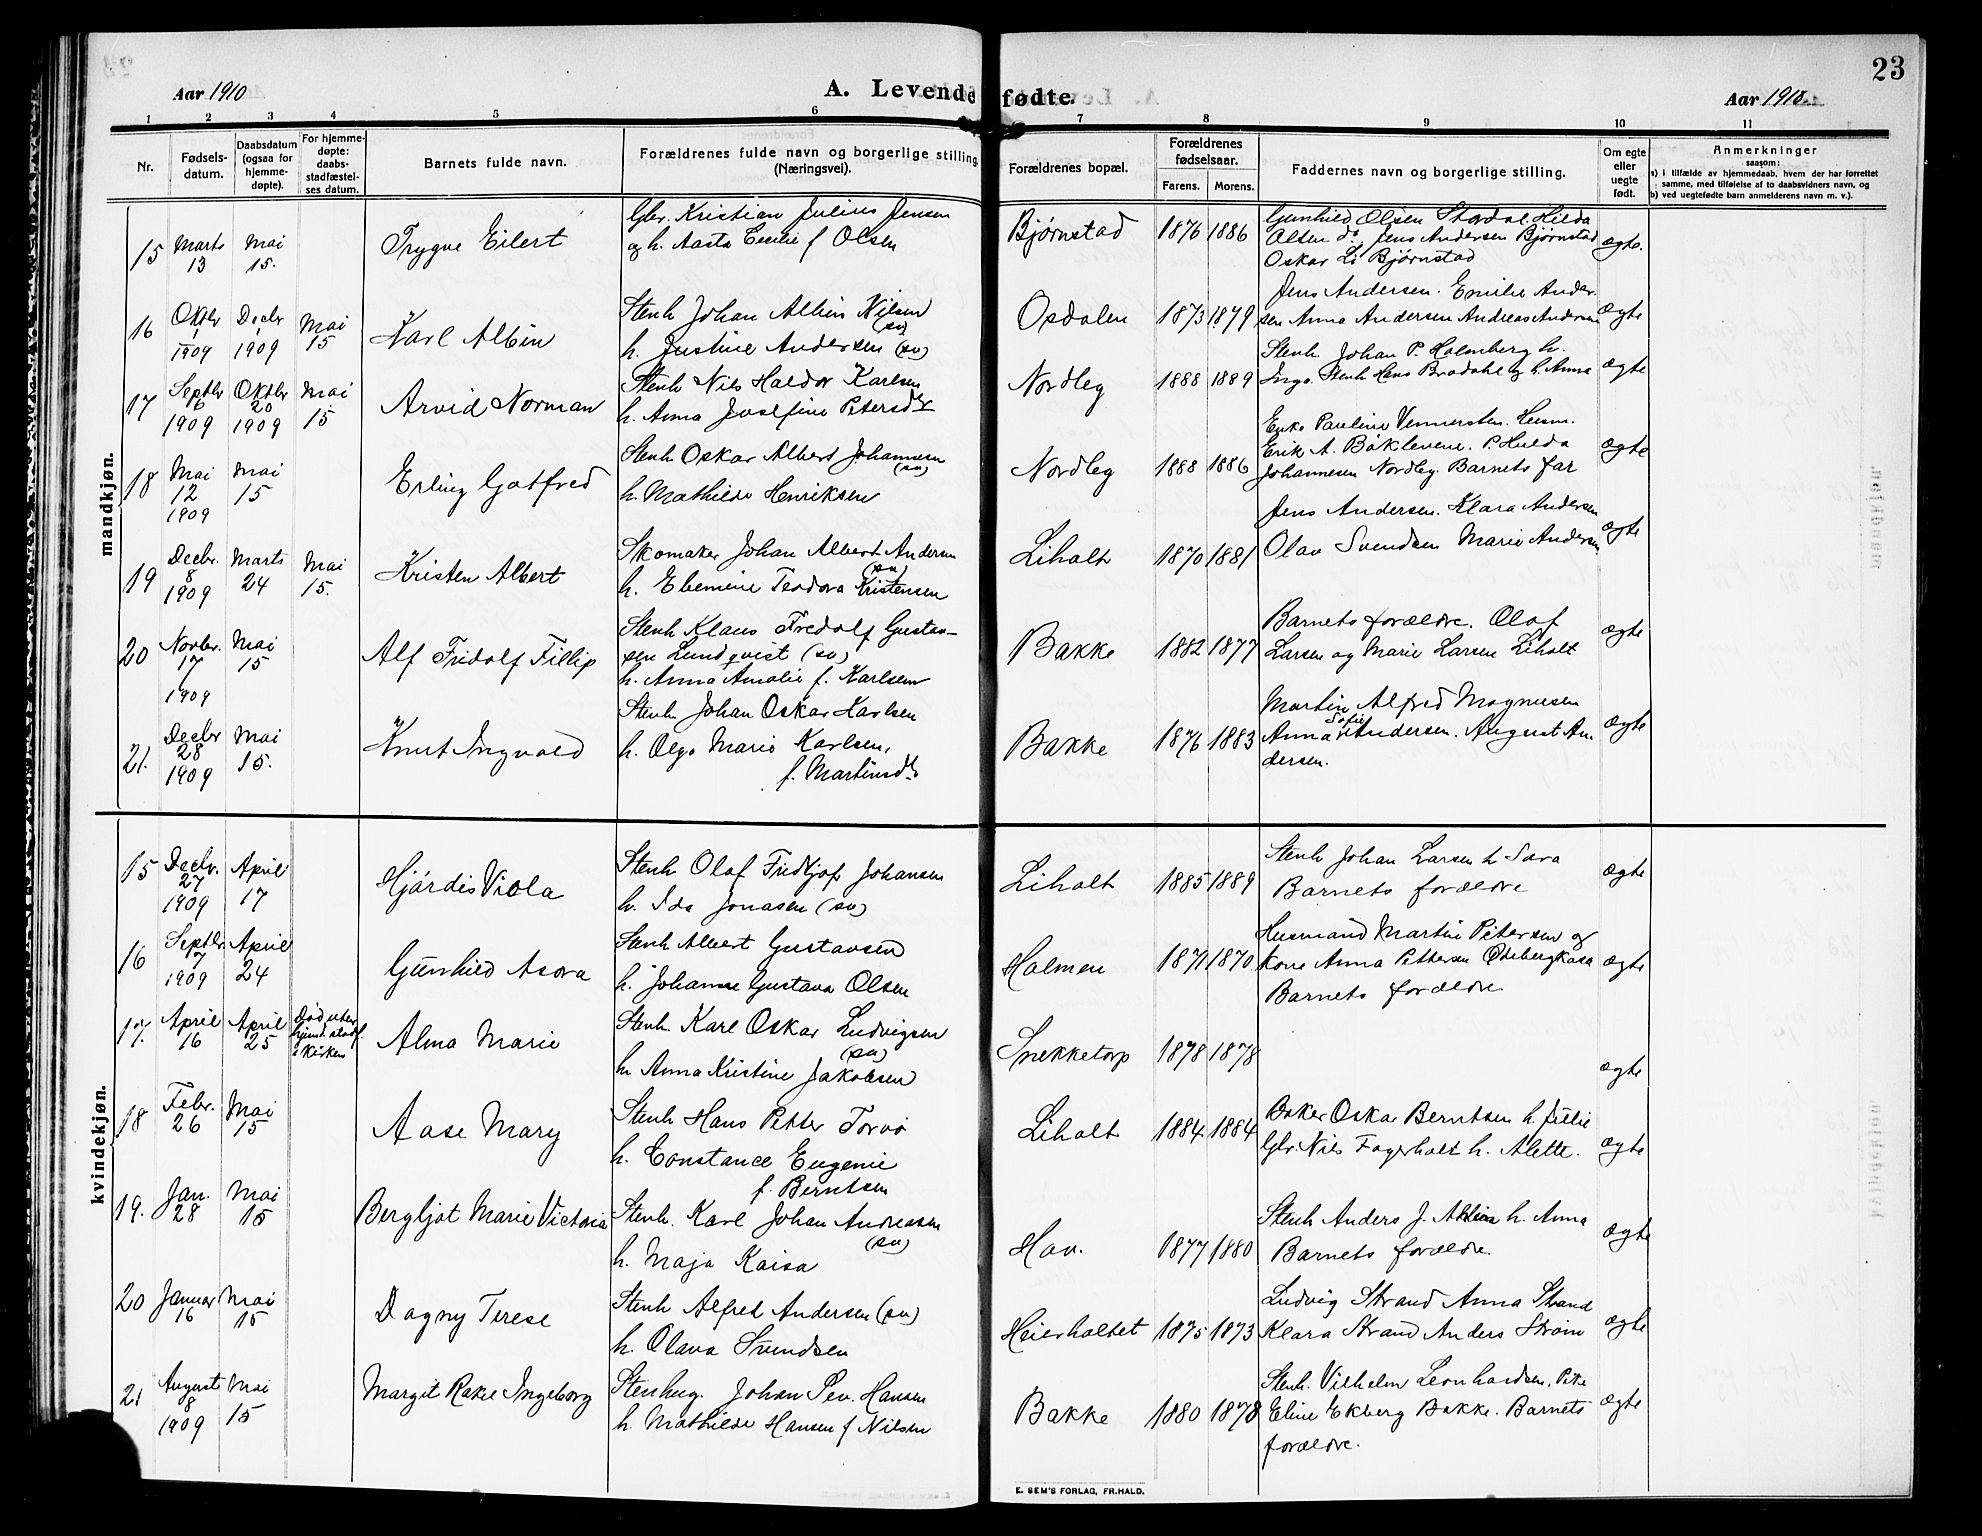 23
Aar 1910
A. Levendefødte.
Aar 1910.
1 2 3 4 5 6 7 8 9 10 11
Nr.
Fødsels-
datum.
Daabsdatum
(ogsaa for
hjemme-
døpte).
For hjemme-
døpte:
daabs-
stadfæstel-
ses datum.
Barnets fulde navn.
Forældrenes fulde navn og borgerlige stilling
(Næringsvei).
Forældrenes bopæl.
Forældrenes
fødselsaar.
Farens. Morens.
Faddernes navn og borgerlige stilling.
Om egte
eller
uegte
født.
Anmerkninger
saasom:
a) i tilfælde av hjemmedaab, hvem der har forrettet
samme, med tilføielse af to daabsvidners navn, og
b) ved uegtefødte barn anmelderens navn m. v.).
mandkjøn.
15 Marts 13 Mai 15. Trygve Eilert
Gbr. Kristian Julius Jensen
og h. Aasta Cecilie f Olsen
Bjørnstad 1876 1886
Gunhild Olsen Stordal. Hilda
Olsen do. Jens Andersen Bjørnstad
Oskar Li Bjørnstad
ægte.
16 Oktbr 1 1909 Decbr 1 1909 Mai 15 Karl Albin
Stenh Johan Albin Nilsen
(sv)
h. Justine Andersen (sv)
Osdalen 1873 1879
Jens Andersen. Emilie Ander-
sen Anna Andersen Andreas Andersen
ægte
17 Septbr 6 1909 Oktbr 20 1909 Mai 15 Arvid Norman
Stenh Nils Haldor Karlsen
h. Anna Josefine Petersdtr
Nordleg 1888 1889
Stenh. Johan P. Holmberg h.
Inga. Stenh Hans Bradahl og h. Anna
ægte
18 Mai 12 1909 Mai 15 Erling Gotfred
Stenh Oskar Albert Johannesen
(sv)
h. Mathilde Henriksen
Nordleg 1888 1886
Enke Pauline Vennersten. Husm.
Erik A. Båklevene. P. Hulda
Johannesen Nordleg. Barnets far
ægte
19 Decbr. 8 1909 Marts 24 Mai 15. Kristen Albert
Skomaker Johan Albert Andersen
(sv)
h. Ebemine Teodora Kristensen
Liholt 1870 1881
Jens Andersen. Klara Andersen
Olav Svendsen Marie Andersen
ægte
20 Novbr. 17 1909 Mai 15 Alf Fridolf Fillip
Stenh Klaus Fredolf Gustav-
sen Lundqvist (sv)
h. Anna Amalie f. Karlsen
Bakke 1882 1877
Barnets forældre. Olaf
Larsen og Marie Larsen Liholt
ægte
21. Decbr 28 1909 Mai 15. Knut Ingvald
Stenh Johan Oskar Karlsen
h. Olga Marie Karlsen,
f. Martinsdtr
Bakke 1876 1883
Martin Alfred Magnusen
Anna Sofie Andersen. August An-
dersen.
ægte
kvindekjøn.
15 Decbr. 27 1909 April 17 Hjørdis Viola
Stenh Olaf Fridtjof Johansen
h. Ida Jonasen (sv)
Liholt 1885 1889
Stenh Johan Larsen h Sara
Barnets forældre
ægte
16 Septbr 7 1909 April 24 Gunhild Asora
Stenh Albert Gustavsen
h. Johanne Gustava Olsen
Holmen 1871 1870
Husmand Martin Petersen og
kone Anna Pettersen Ødebergkasa
Barnets forældre
ægte
17. April 16 April 25
Død uten
hjemd. stadf.
i kirken
Alma Marie
Stenh. Karl Oskar Ludvigsen
(sv)
h. Anna Kristine Jakobsen
Snekketorp 1878 1878
ægte
18 Febr. 26 Mai 15 Aase Mary
Stenh Hans Petter Torvø
h. Constance Eugenie
f. Berntsen
Liholt 1884 1884
Baker Oskar Berntsen h. Julie
Gbr. Nils Fagerholt h. Alette.
ægte
19. Jan. 28 Mai 15 Bergljot Marie Victoria
Stenh. Karl Johan Andreasen
(sv)
h. Maja Kaisa
Hov. 1877 1880
Stenh Anders J. h. Anna
Barnets forældre.
ægte
20 Januar 16 Mai 15 Dagny Terese
Stenh Alfred Andersen (sv)
h. Olava Svendsen
Heierholtet 1875 1873
Ludvig Strand Anna Strand
Klara Strand Anders Strøm
ægte
21 August 8 1909 Mai 15 Margit Rakel Ingeborg
Stenhug. Johan Sev. Hansen
h. Mathilde Hansen f Nilsen
Bakke 1880 1878
Stenh. Vilhelm Leonhardsen. Pike
Eline Ekberg Bakke. Barnets
forældre.
ægte
E. SEM'S FORLAG, FR.HALD.